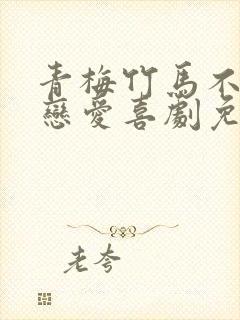 青梅竹馬不
戀愛喜劇免
老夸